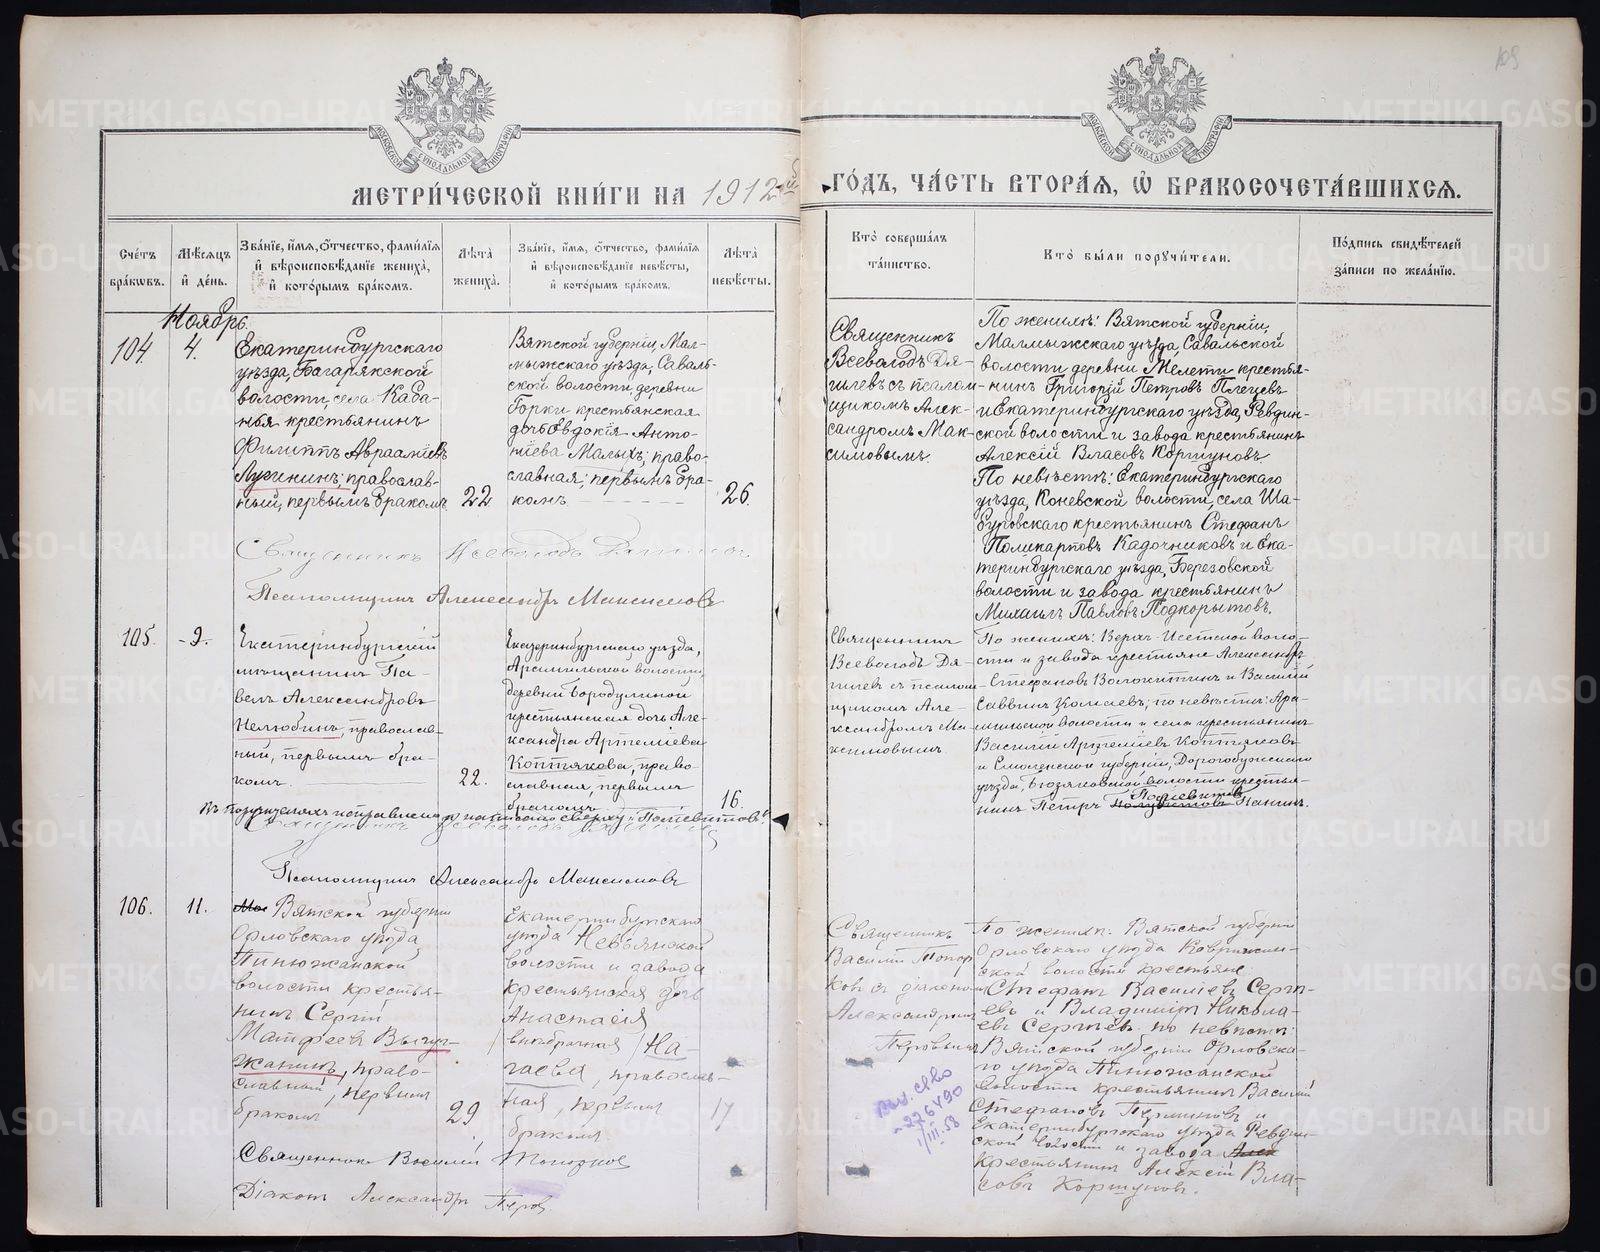 109
МЕТРИ́ЧЕСКОЙ КНИ́ГИ НА 1912-й ГО́ДЪ, ЧА́СТЬ ВТОРА́Я, Ѡ БРАКОСОЧЕТА́ВШИХСЯ.
Сче́тъ бра́кѡвъ.
Мѣ́сяцъ и де́нь.
Зва́нїе, и́мя, о́тчество, фами́лїя и вѣроисповѣ́данїе жениха́, и кото́рымъ бра́комъ.
Лѣ́та жениха́.
Зва́нїе, и́мя, о́тчество, фами́лїя и вѣроисповѣ́данїе невѣ́сты, и кото́рымъ бра́комъ.
Лѣ́та невѣ́сты.
Кто̀ соверша́лъ та́инство.
Кто̀ бы́ли поручи́тели.
По́дпись свидѣ́телей за́писи по жела́нїю.
Ноябрь.
104
4.
Екатеринбургскаго
уѣзда, Багарякской
волости, села Каба-
нья крестьянинъ
Филиппъ Авраамiевъ
Лугининъ; православ-
ный, первымъ бракомъ.
22
Вятской губернiи, Мал-
мыжскаго уѣзда, Саваль-
ской волости деревни
Горки крестьянская
дочь Евдокiя Анто-
нiева Малыхъ; право-
славная; первымъ бра-
комъ
26
Священникъ
Всеволодъ Дя-
гилевъ съ псалом-
щикомъ Алек-
сандромъ Мак-
симовымъ.
По женихѣ: Вятской губернiи,
Малмыжскаго уѣзда, Савальской
волости деревни Мелети крестья-
нинъ Григорiй Петровъ Плецевъ
и Екатеринбургскаго уѣзда, Ревдин-
ской волости и завода крестьянинъ
Алексiй Власовъ Коршуновъ
По невѣстѣ: Екатеринбургскаго
уѣзда, Коневской волости, села Ша-
буровскаго крестьянинъ Стефанъ
Поликарповъ Кадочниковъ и Ека-
теринбургскаго уѣзда, Березовской
волости и завода крестьянинъ
Михаилъ Павловъ Подкорытовъ.
Священникъ Всеволодъ Дягилевъ
Псаломщикъ Александръ Максимовъ
105.
-9.-
Екатеринбургскiй
мѣщанинъ Па-
велъ Александровъ
Нелюбинъ, православ-
ный, первымъ бра-
комъ.
22.
Екатеринбургскаго уѣзда,
Арамильской волости,
деревни Бородулиной
крестьянская дочь Але-
ксандра Артемiева
Коптякова, право-
славная, первымъ
бракомъ
16.
Священникъ
Всеволодъ Дя-
гилевъ съ псалом-
щикомъ Але-
ксандромъ Ма-
ксимовымъ
По женихѣ: Верхъ-Исетской воло-
сти и завода крестьяне Александръ
Стефановъ Волокитинъ и Василiй
Саввинъ Комаевъ; по невѣстѣ: Ара-
мильской волости и села крестьянинъ
Василiй Артемiевъ Коптяковъ
и Смоленской губернiи, Дорогобужскаго
уѣзда, волости крестья-
нинъ Петръ Панинъ.
Въ поручителяхъ исправлено и написано сверху:
Священникъ Всеволодъ Дягилевъ
Псаломщикъ Александръ Максимовъ
106.
11.
Вятской губернiи
Орловскаго уѣзда
Пинюжанской
волости крестья-
нинъ Сергiй
Матфеевъ Вычуг-
жанинъ, право-
славный, первымъ
бракомъ
29
Екатеринбургскаго
уѣзда Невьянской
волости и завода
крестьянская дочь
Анастасiя
внѣбрачная / На-
гаева, православ-
ная, первымъ
бракомъ
17
Священникъ
Василiй Топор-
ковъ съ дiакономъ
Александромъ
Перовымъ
По женихѣ: Вятской губернiи
Орловскаго уѣзда
ской волости крестьяне
Стефанъ Василiевъ Сергѣ-
евъ и Владимiръ Никола-
евъ Сергѣевъ. по невѣстѣ:
Вятской губернiи Орловска-
го уѣзда Пинюжанской
волости крестьянинъ Василiй
Стефановъ Перминовъ и
Екатеринбургскаго уѣзда Ревдин-
ской волости и завода
крестьянинъ Алексiй Вла-
совъ Коршуновъ.
Священникъ Василiй Топорковъ
Дiаконъ Александръ Перов
выд. св-во
276490
1/III.58
METRIKI.GASO-URAL.RU